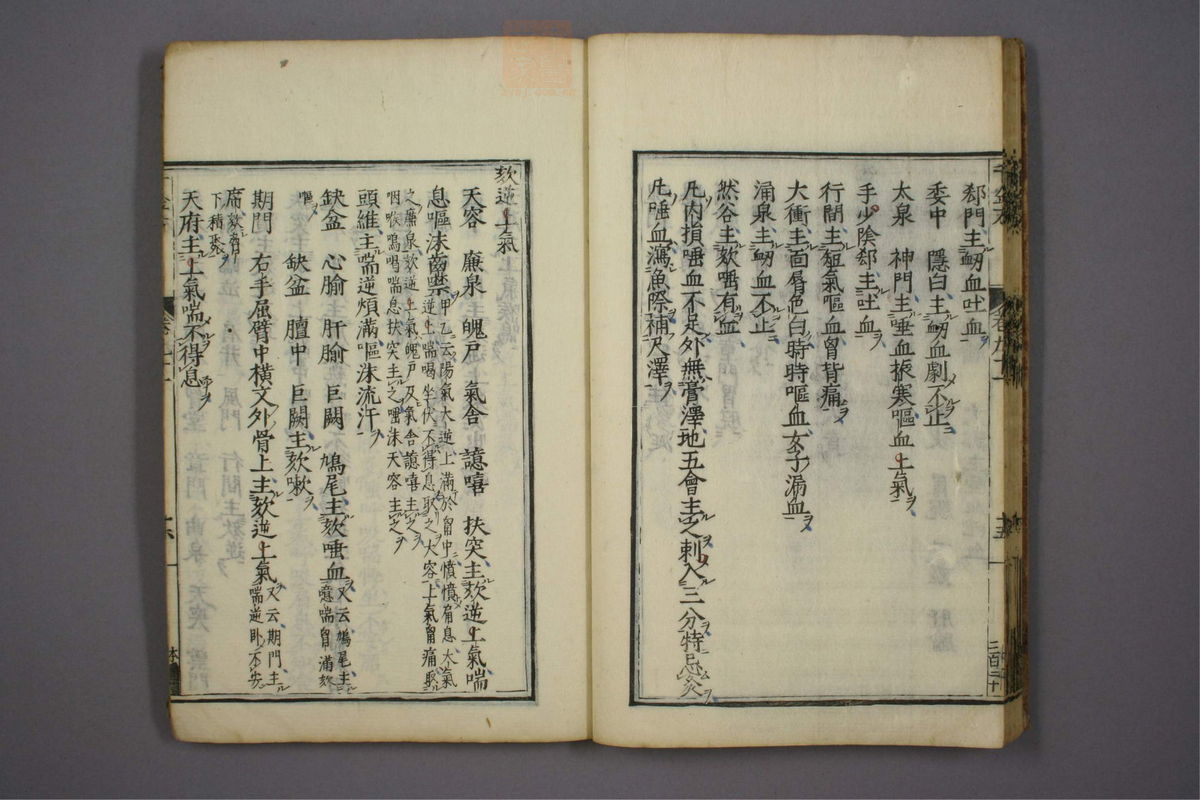 郄門主衂血吐血
委中 隱白主衂血劇不止
太泉 神門主唾血振寒嘔血上氣
手少陰郄主吐血
行間主短氣嘔血胷背痛
大衝主面脣色白時時嘔血女子漏血
涌泉主衂血不止
然谷主欬唾有血
凡肉損唾血不足外無膏澤地五會主之刺入三分特忌灸
凡唾血瀉魚際補尺澤
三百三十
欬逆上氣
天容 廉泉 魄戶 氣舍 譩嘻 扶突主欬逆上氣喘
息嘔沫齒禁
甲乙云陽氣大逆上滿於胷中憤憤肩息大氣
逆上喘喝坐伏不得息取之天容上氣胷痛取
之廉泉欬逆上氣魄戶及氣舍譩嘻主之
咽喉鳴喝喘息扶突主之唾沫天容主之
頭維主喘逆煩滿嘔沫流汗
缺盆 心腧 肝腧 巨闕 鳩尾主欬唾血
又云鳩尾主
噫喘胷滿欬
嘔
缺盆 膻中 巨闕主欬嗽
期門 右手屈臂中橫文外骨上主欬逆上氣
又云期門主
喘逆卧不安
席欬脅
下積聚
天府主上氣喘不得息